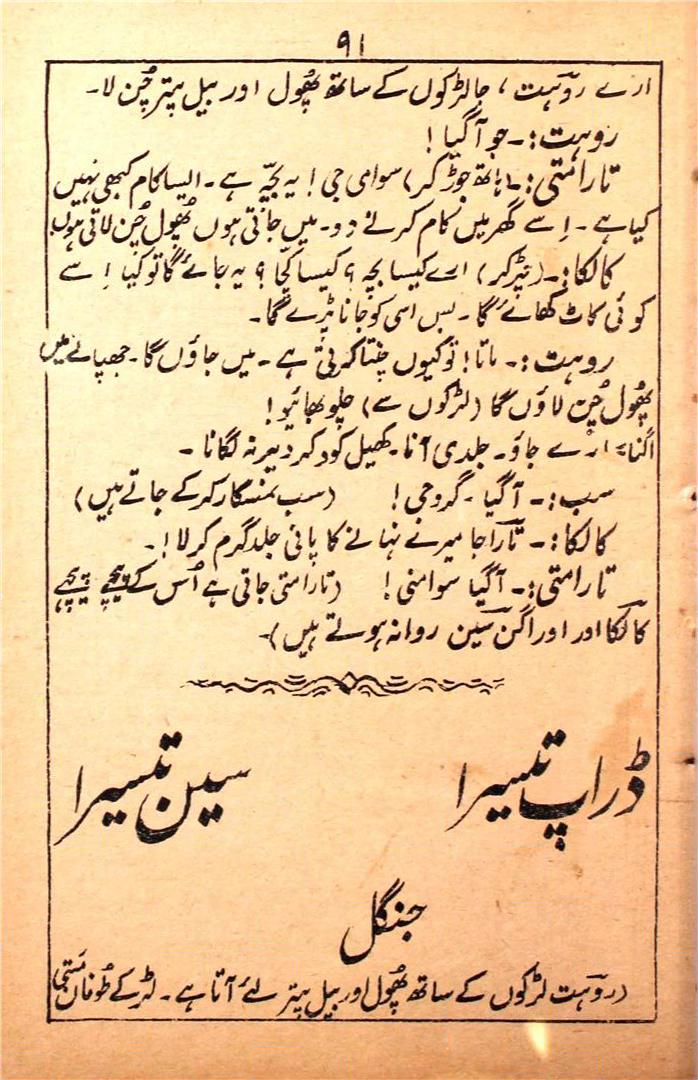 ۹۱
ارے روہت، جا لڑکوں کے ساتھ پھُول اور بیل پتر چُن لا۔
روہت:۔ جو آگیا!
تارامتی:۔ (ہاتھ جوڑ کر) سوامی جی! یہ بچّہ ہے۔ ایسا کام کبھی نہیں
کیا ہے۔ اِسے گھر میں کام کرنے دو۔ میں جاتی ہوں پھُول چُن لاتی ہوں۔
کالکا:۔ (بگڑ کر) ارے کیسا بچہ؟ کیسا کچّا؟ یہ جائے گا تو کیا اِسے
کوئی کاٹ کھائے گا۔ بس اسی کو جانا پڑے گا۔
روہت:۔ ماتا! تو کیوں چنتا کرتی ہے۔ میں جاؤں گا۔ جھپاٹے میں
پھُول چُن لاؤں گا (لڑکوں سے) چلو بھائیو!
اگنا:۔ ارے جاؤ۔ جلدی آنا۔ کھیل کود کر دیر نہ لگانا۔
سب:۔ آگیا۔ گروجی! (سب نمسکار کر کے جاتے ہیں)
کالکا:۔ تارا جا میرے نہانے کا پانی جلد گرم کر لا!۔
تارامتی:۔ آگیا سوامنی! (تارامتی جاتی ہے اُس کے پیچھے پیچھے
کالکا اور اور اگن سین روانہ ہوتے ہیں)۔
ڈراپ تیسرا سین تیسرا
جنگل
(روہت لڑکوں کے ساتھ پھُول اور بیل پتر لئے آتا ہے۔ لڑکے طُوفان مستی